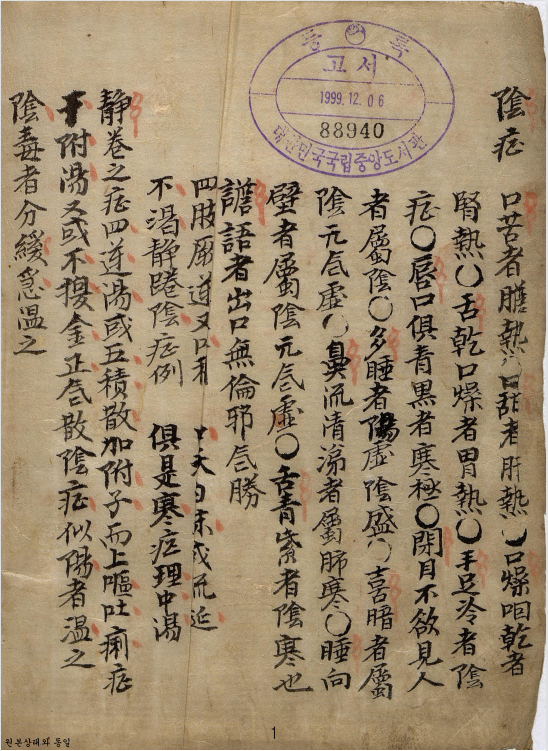 등록
고서
1999.12.06
88940
대한민국국립중앙도서관
陰症
口苦者膽熱〇口甜者肝熱〇口燥咽乾者
腎熱〇舌乾口燥者胃熱〇手足冷者陰
症〇唇口俱青黑者寒極〇閉目不欲見人
者屬陰〇多睡者陽虛陰盛〇喜暗者屬
陰元气虛〇鼻流清涕者屬肺寒〇睡向
壁者屬陰元气虛〇舌青紫者陰寒也
譫語者出口無倫邪气勝
四肢厥逆又口
不渴静踡陰症例 俱是寒症理中湯
静卷之症四逆湯或五積散加附子而上嘔吐痢症
干附湯又或不換金正气散陰症似陽者溫之
陰毒者分緩急溫之
원본상태와 동일
1